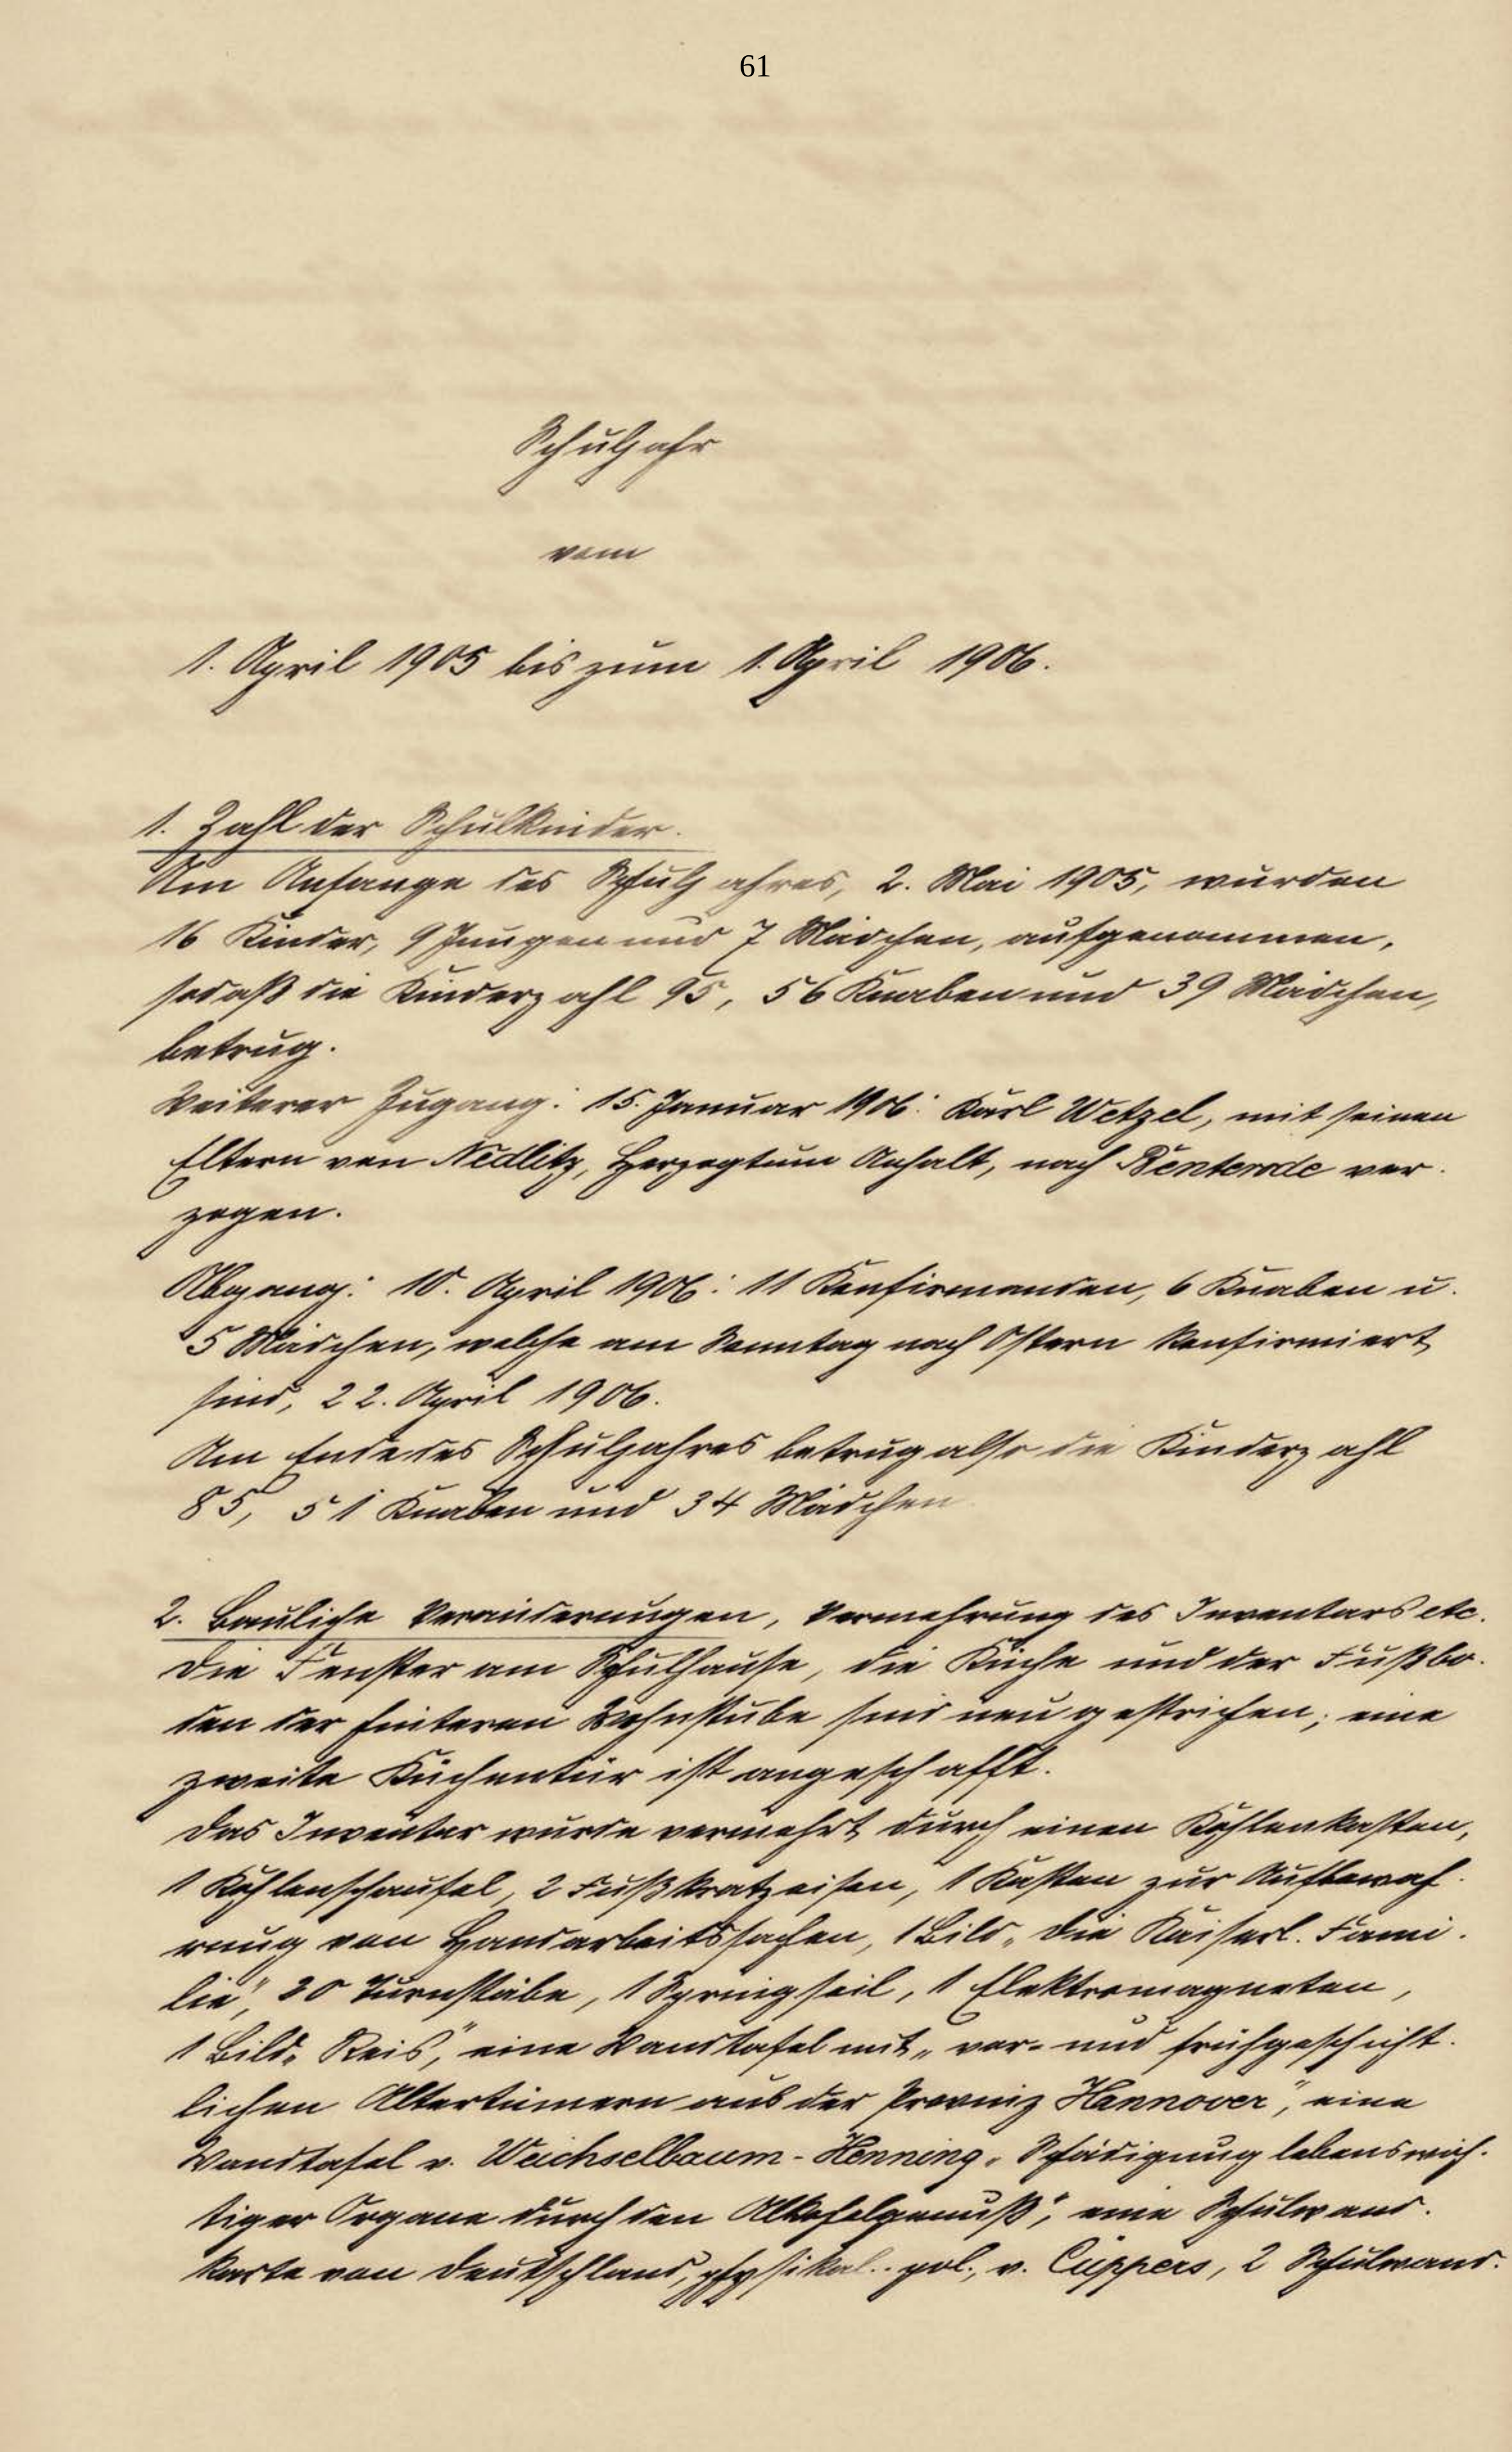 61
Schuljahr
vom
1. April 1905 bis zum 1. April 1906.
1. Zahl der Schulkinder.
Am Anfange des Schuljahres, 2. Mai 1905, wurden
16 Kinder, 9 Jungen und 7 Mädchen, aufgenommen,
sodaß die Kinderzahl 95, 56 Knaben und 39 Mädchen,
betrug.
Weiterer Zugang: 15. Januar 1906: Karl Wetzel, mit seinen
Eltern von Nedlitz, Herzogtum Anhalt, nach Benterode ver-
zogen.
Abgang: 10. April 1906: 11 Konfirmanden, 6 Knaben u.
5 Mädchen, welche am Sonntag nach Ostern konfirmiert
sind, 22. April 1906.
Am Ende des Schuljahres betrug also die Kinderzahl
85, 51 Knaben und 34 Mädchen
2. Bauliche Veränderungen, Vermehrung des Inventars etc.
Die Fenster am Schulhause, die Küche und der Fußbo-
den der hinteren Wohnstube sind neu gestrichen; eine
zweite Küchentür ist angeschafft.
Das Inventar wurde vermehrt durch einen Kohlenkasten,
1 Kohlenschaufel, 2 Fußkratzeisen, 1 Kasten zur Aufbewah-
rung von Handarbeitssachen, 1 Bild „Die Kaiserl. Fami-
lie", 20 Turnstäbe, 1 Springseil, 1 Elektromagneten,
1 Bild „Reis", eine Wandtafel mit „vor- und frühgeschicht-
lichen Altertümern aus der Provinz Hannover", eine
Wandtafel v. Weichselbaum-Henning „Schädigung lebenswich-
tiger Organe durch den Alkoholgenuß", eine Schulwand-
karte von Deutschland, physikal.-pol., v. Cüppers, 2 Schulwand-